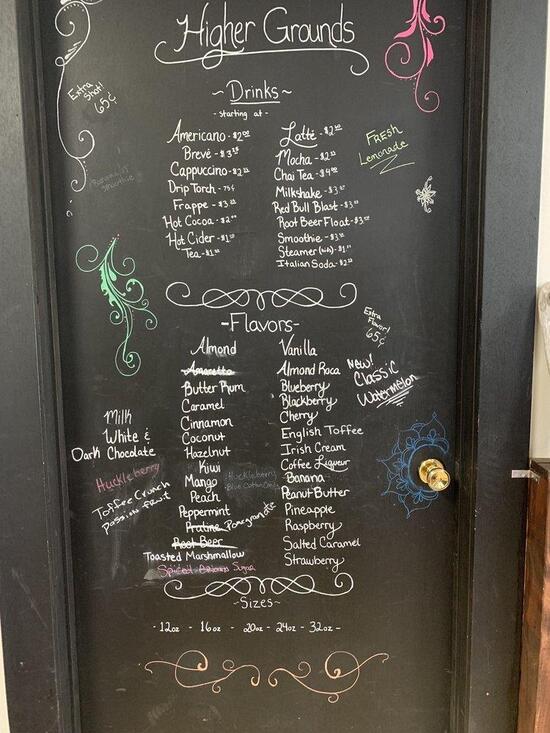 Higher Grounds
~ Drinks ~
- starting at -
Extra Shot! 65¢
Americano - $2.00
Brevé - $3.25
Cappuccino - $2.25
Drip Torch - 75¢
Frappe - $3.25
Hot Cocoa - $2.00
Hot Cider - $1.50
Tea - $1.25
Latté - $2.50
Mocha - $2.75
Chai Tea - $4.00
Milkshake - $3.50
Red Bull Blast - $3.50
Root Beer Float - $3.00
Smoothie - $3.50
Steamer - $1.75
Italian Soda - $2.25
FRESH
Lemonade
-Flavors-
Extra
Flavor!
65¢
Almond
Amaretto
Butter Rum
Caramel
Cinnamon
Coconut
Hazelnut
Kiwi
Mango
Peach
Peppermint
Praline Pomegranate
Root Beer
Toasted Marshmallow
Spiced Brown Sugar
Vanilla
Almond Roca
Blueberry
Blackberry
Cherry
English Toffee
Irish Cream
Coffee Liqueur
Banana
Peanut Butter
Pineapple
Raspberry
Salted Caramel
Strawberry
NEW!
Classic
Watermelon
Milk
White &
Dark Chocolate
Huckleberry
Toffee Crunch
Passion fruit
Huckleberry
~Sizes~
- 12oz - 16oz - 20oz - 24oz - 32oz -